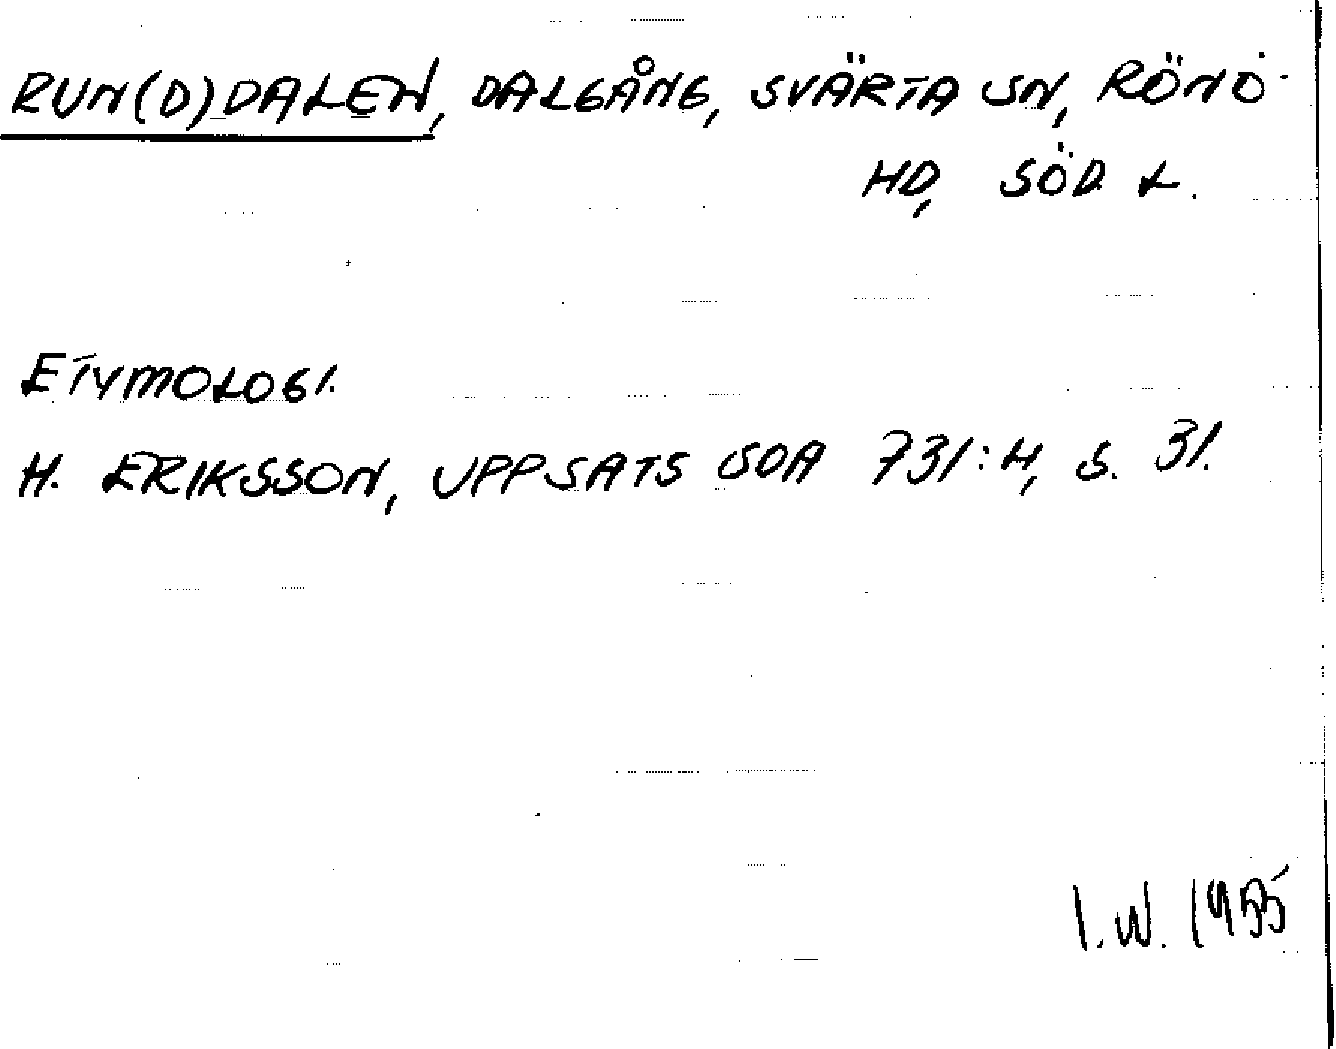 RUN(D)DALEN, DALGÅNG, SVÄRTA SN, RÖNÖ
HD, SÖD. L.
ETYMOLOGI.
H. ERIKSSON, UPPSATS SOA 731:4, S. 31.
I.W. 1955